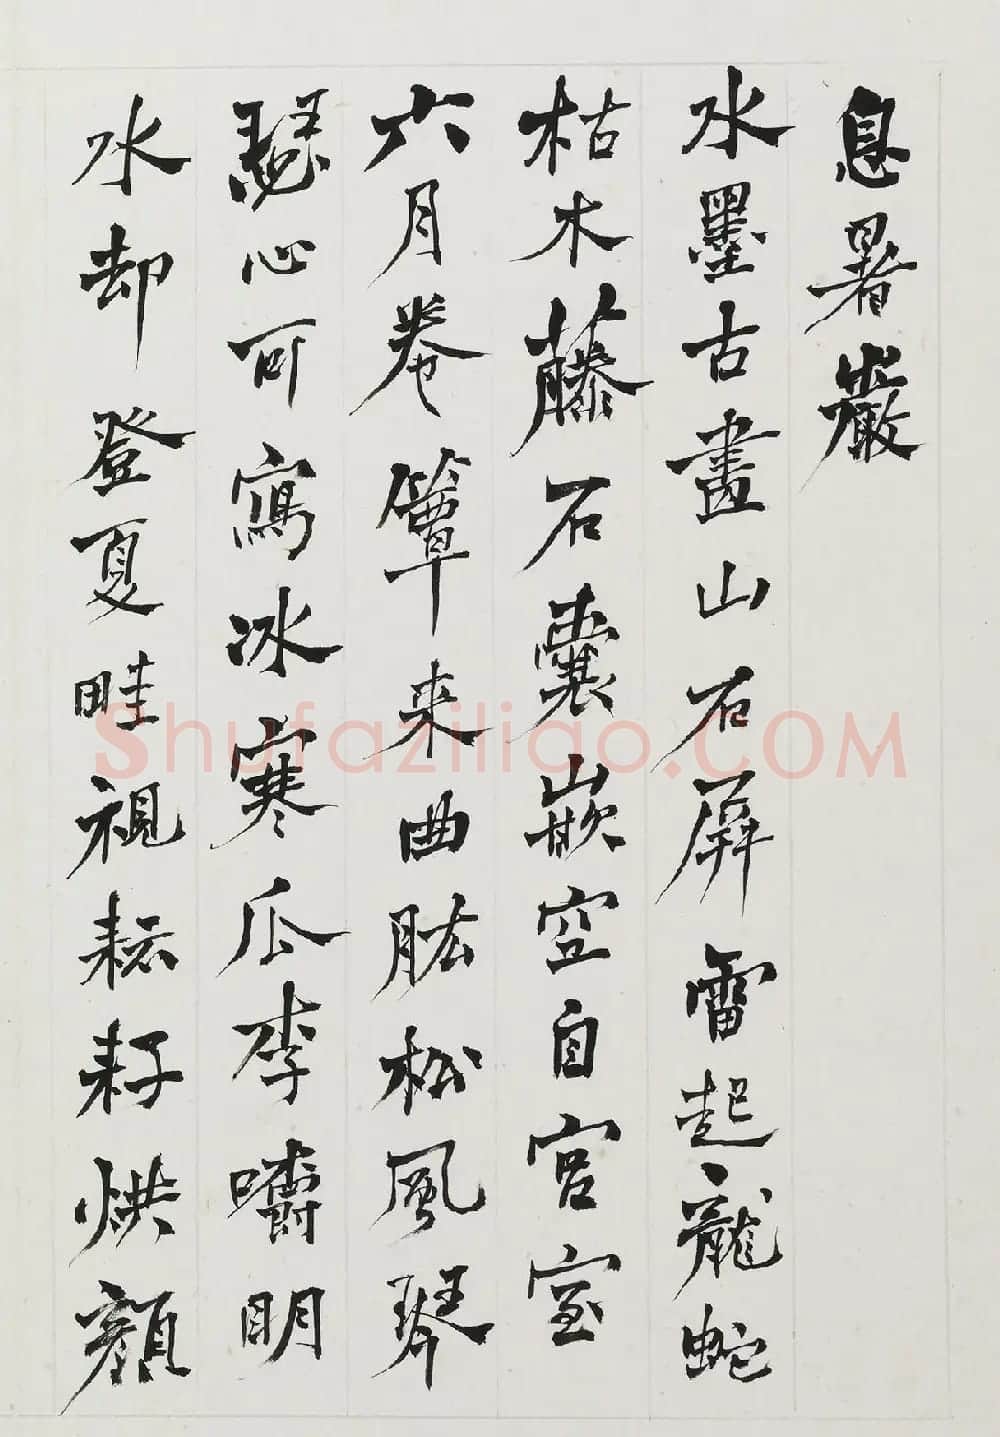 息暑巖
水墨古畫山石屏雷起龍蛇
枯木藤石囊嵌空自宮室
六月卷簟来曲肱松風琴
瑟心可寫冰寒瓜李嚼明
水却登夏畦視耘耔烘顏
Shufaziliao.COM